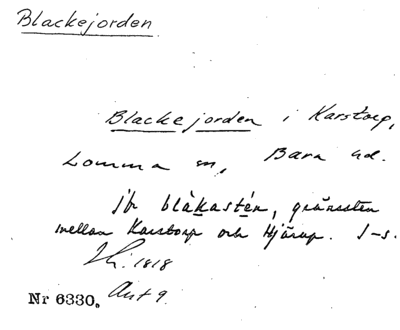 Blackejorden
Blackejorden i Karstorp,
Lomma sn, Bara hd.
jfr blàkastén, gränssten
mellan Karstorp och Hjärup. J-s.
1818
Nr 6330. Avt 9